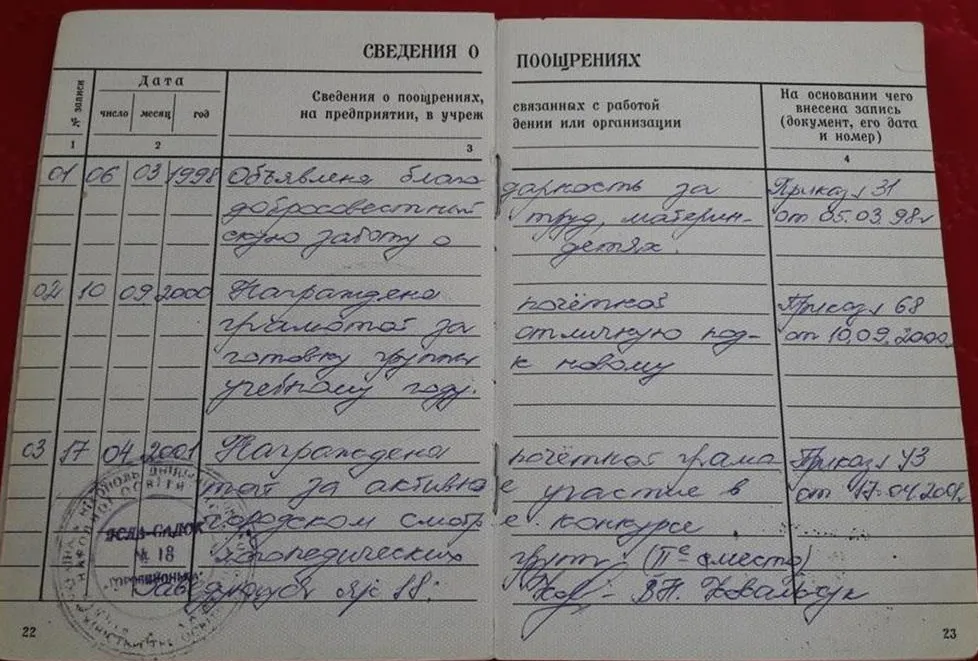 СВЕДЕНИЯ О ПООЩРЕНИЯХ
№ записи
Дата
число месяц год
Сведения о поощрениях, связанных с работой
на предприятии, в учреждении или организации
На основании чего
внесена запись
(документ, его дата
и номер)
1 2 3 4
01 06 03 1998 Объявлена благодарность за Приказ 31
добросовестный труд, материн- от 05.03.98г
скую заботу о детях.
02 10 09 2000 Награждена почётной Приказ 68
грамотой за отличную под- от 10.09.2000
готовку группы к новому
учебному году.
03 17 04 2001 Награждена почётной грамо Приказ 43
той за активное участие в от 17.04.2001
городском смотре конкурсе
групп. (II е место)
Зав В.Н. Ковальчук
ЯСЛА-САДОК
№ 18
22
23